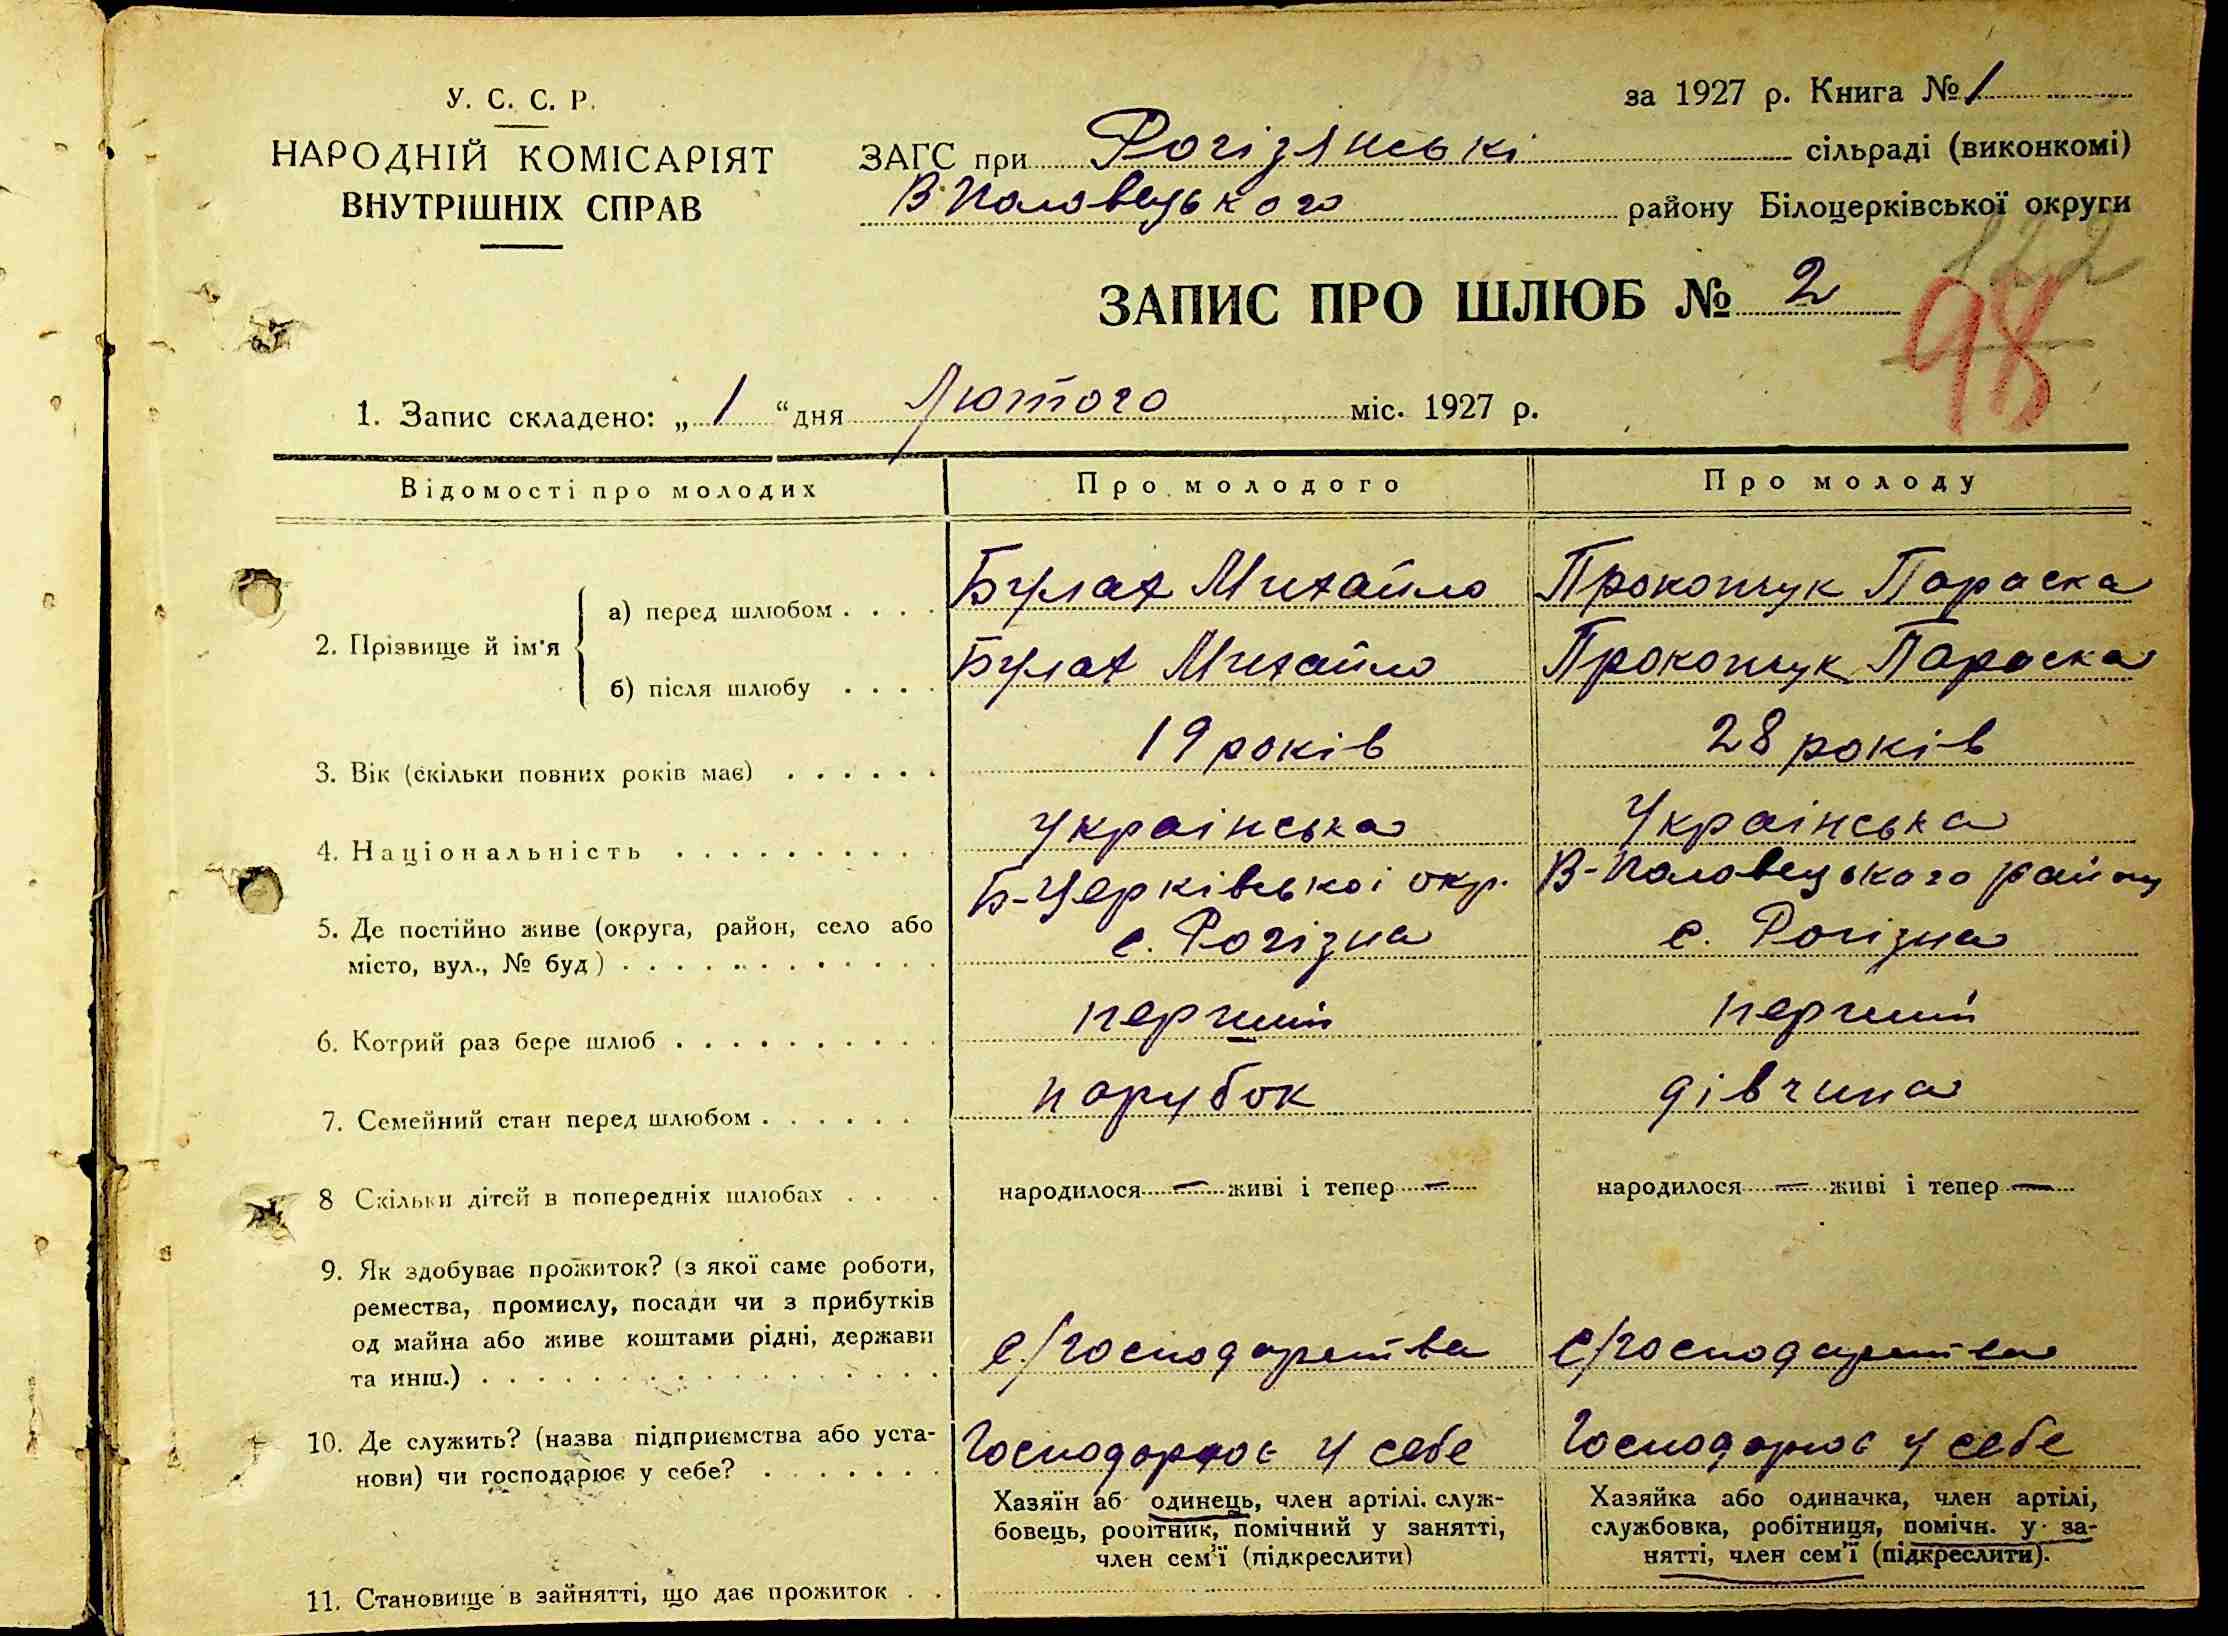 У. С. С. Р.
НАРОДНІЙ КОМІСАРІЯТ
ВНУТРІШНІХ СПРАВ
за 1927 р. Книга № 1
ЗАГС при Рогізянські сільраді (виконкомі)
В Половецького району Білоцерківської округи
122
ЗАПИС ПРО ШЛЮБ № 2
98
1. Запис складено: „ 1 “ дня Лютого міс. 1927 р.
Відомості про молодих
Про молодого
Про молоду
2. Прізвище й ім'я
а) перед шлюбом . . . .
Булах Михайло
Прокопчук Параска
б) після шлюбу . . . .
Булах Михайло
Прокопчук Параска
3. Вік (скільки повних років має) . . . . . .
19 років
28 років
4. Національність . . . . . . . . . .
Українська
Українська
5. Де постійно живе (округа, район, село або
місто, вул., № буд) . . . . . . . . . . . .
Б-Церківської окр.
с. Рогізна
В-Половецького району
с. Рогізна
6. Котрий раз бере шлюб . . . . . . . . . .
перший
перший
7. Семейний стан перед шлюбом . . . . . .
парубок
дівчина
8 Скільки дітей в попередніх шлюбах . . .
народилося — живі і тепер —
народилося — живі і тепер —
9. Як здобуває прожиток? (з якої саме роботи,
ремества, промислу, посади чи з прибутків
од майна або живе коштами рідні, держави
та инш.) . . . . . . . . . . . . . . . . .
с/господарства
с/господарства
10. Де служить? (назва підприємства або уста-
нови) чи господарює у себе? . . . . . . .
Господарює у себе
Господарює у себе
Хазяїн аб одинець, член артілі, служ-
бовець, робітник, помічний у занятті,
член сем'ї (підкреслити)
Хазяйка або одиначка, член артілі,
службовка, робітниця, помічн. у за-
нятті, член сем'ї (підкреслити).
11. Становище в зайнятті, що дає прожиток . .